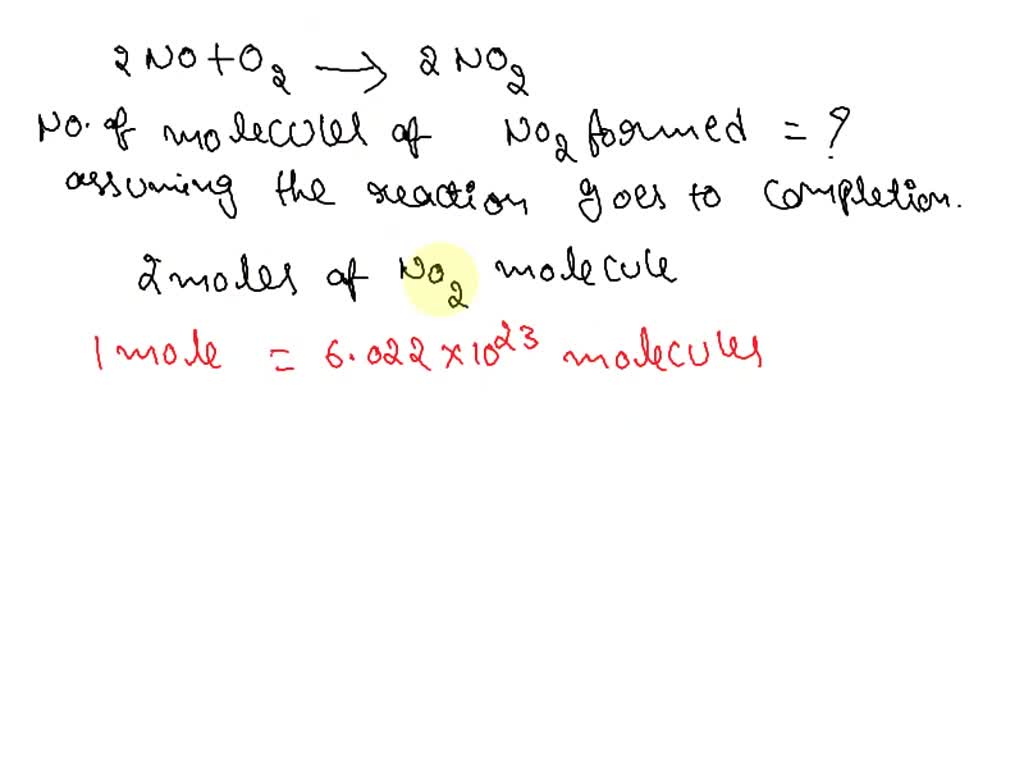 2 NO + O₂ → 2 NO₂
No. of molecules of NO₂ formed = ?
assuming the reaction goes to completion.
2 moles of NO₂ molecule
1 mole = 6.022 × 10²³ molecules